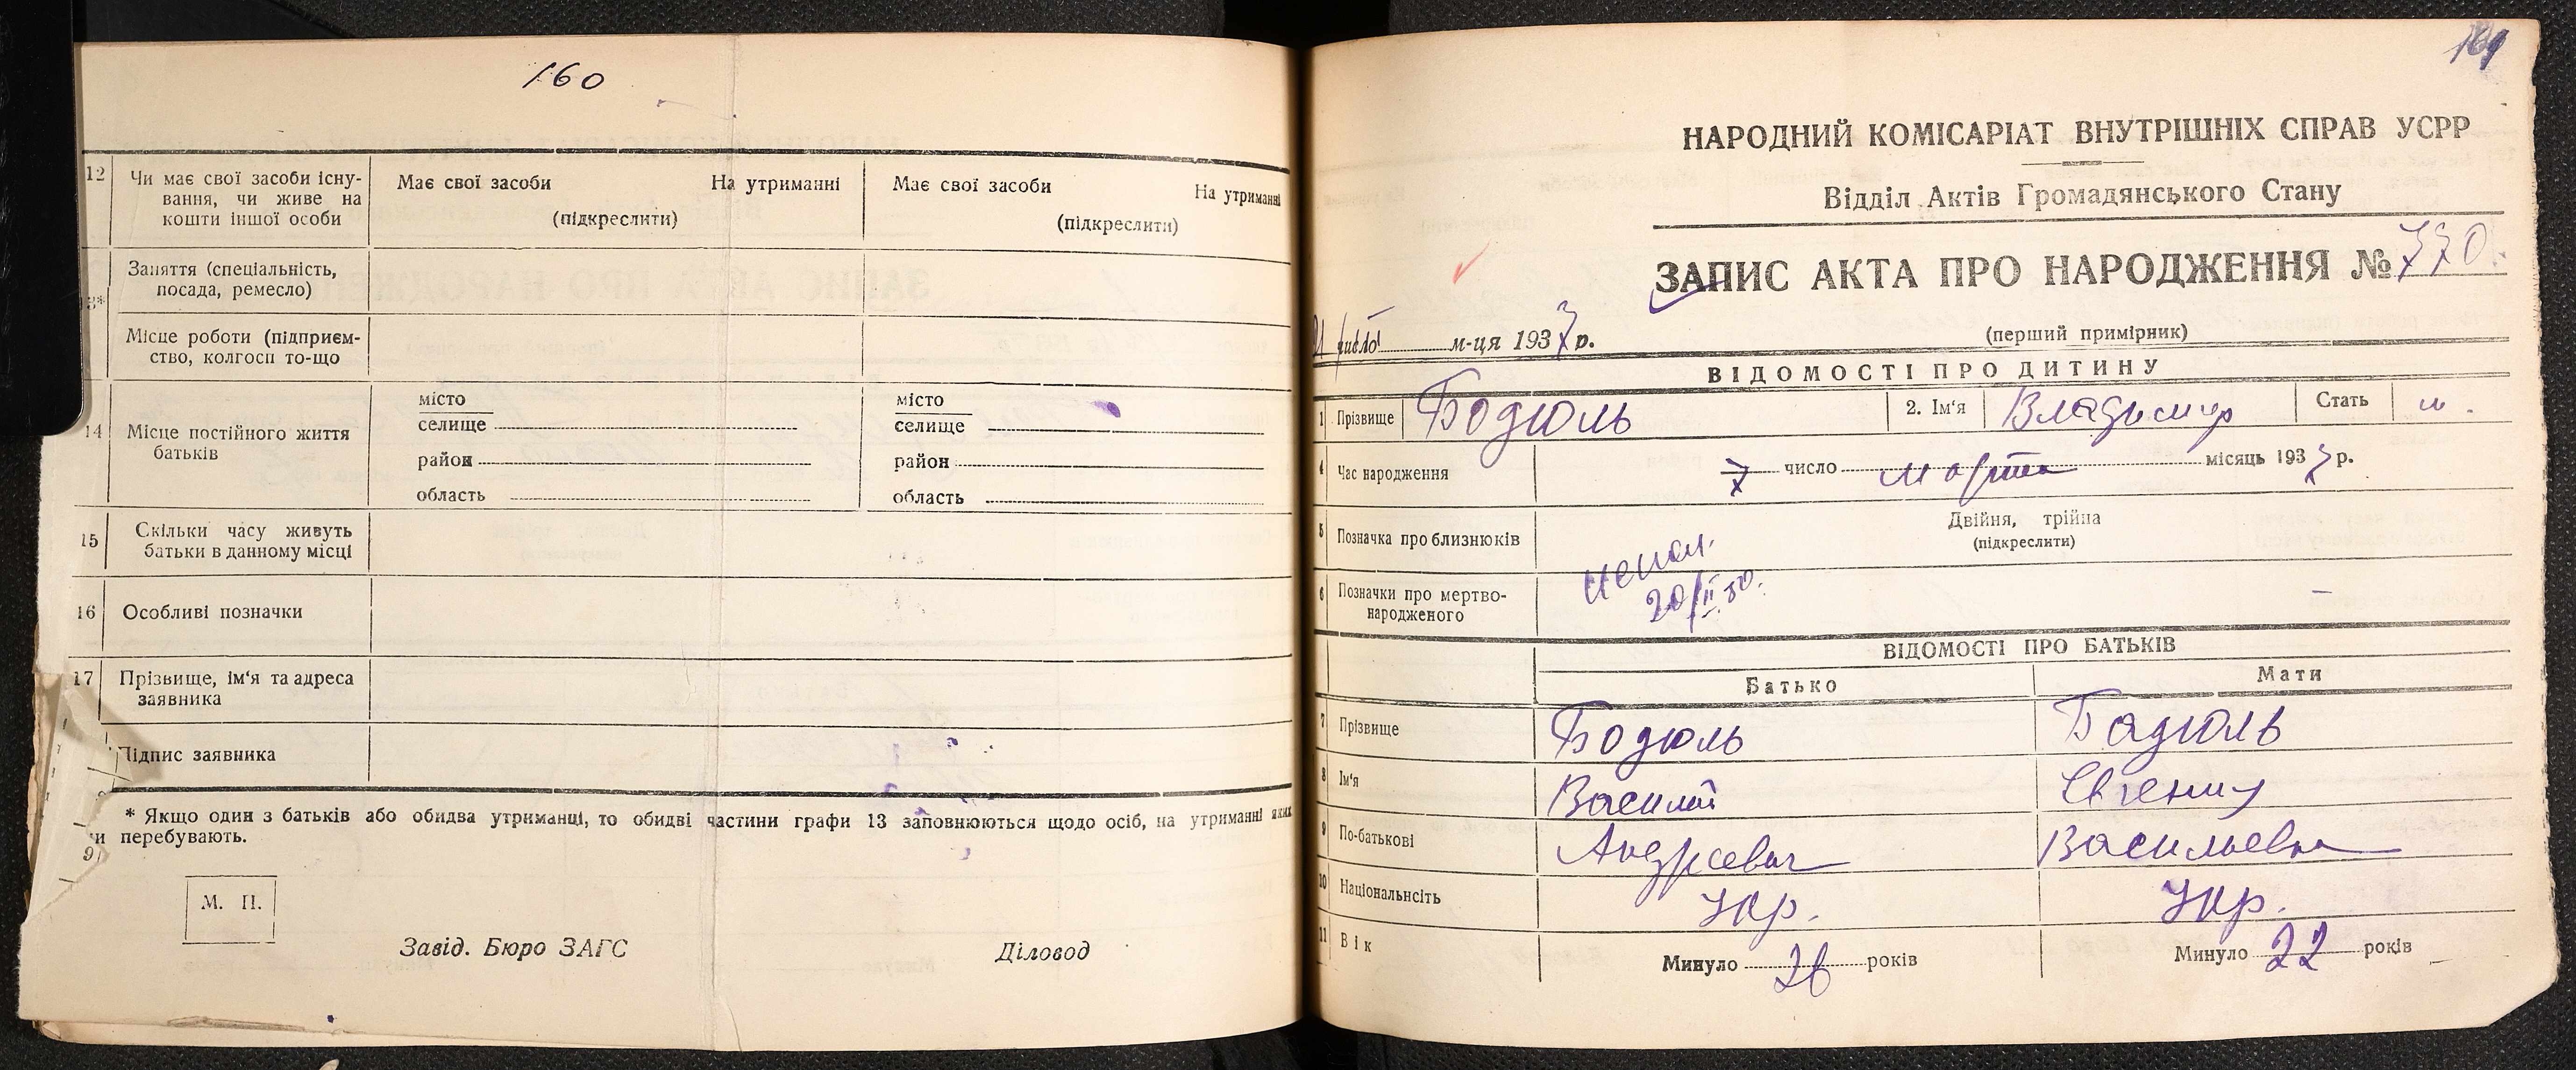 160
12 Чи має свої засоби існу-
вання, чи живе на
кошти іншої особи
Має свої засоби На утриманні
(підкреслити)
Має свої засоби На утриманні
(підкреслити)
13*
Заняття (спеціальність,
посада, ремесло)
Місце роботи (підприєм-
ство, колгосп то-що
14 Місце постійного життя
батьків
місто
селище
район
область
місто
селище
район
область
15 Скільки часу живуть
батьки в данному місці
16 Особливі позначки
17 Прізвище, ім'я та адреса
заявника
Підпис заявника
* Якщо один з батьків або обидва утриманці, то обидві частини графи 13 заповнюються щодо осіб, на утриманні яких
перебувають.
М. П.
Завід. Бюро ЗАГС Діловод
НАРОДНИЙ КОМІСАРІАТ ВНУТРІШНІХ СПРАВ УСРР
Відділ Актів Громадянського Стану
ЗАПИС АКТА ПРО НАРОДЖЕННЯ № 770.
м-ця 1937 р.
(перший примірник)
ВІДОМОСТІ ПРО ДИТИНУ
1 Прізвище Бодюль 2. Ім'я Владимир Стать м.
4 Час народження 7 число марта місяць 1937 р.
5 Позначка про близнюків Двійня, трійна
(підкреслити)
20/II 50.
6 Позначки про мертво-
народженого —
ВІДОМОСТІ ПРО БАТЬКІВ
Батько Мати
7 Прізвище Бодюль Бадюль
8 Ім'я Василий Евгения
9 По-батькові Андреевич Васильевна
10 Національнсіть Укр. Укр.
11 Вік Минуло 26 років Минуло 22 років